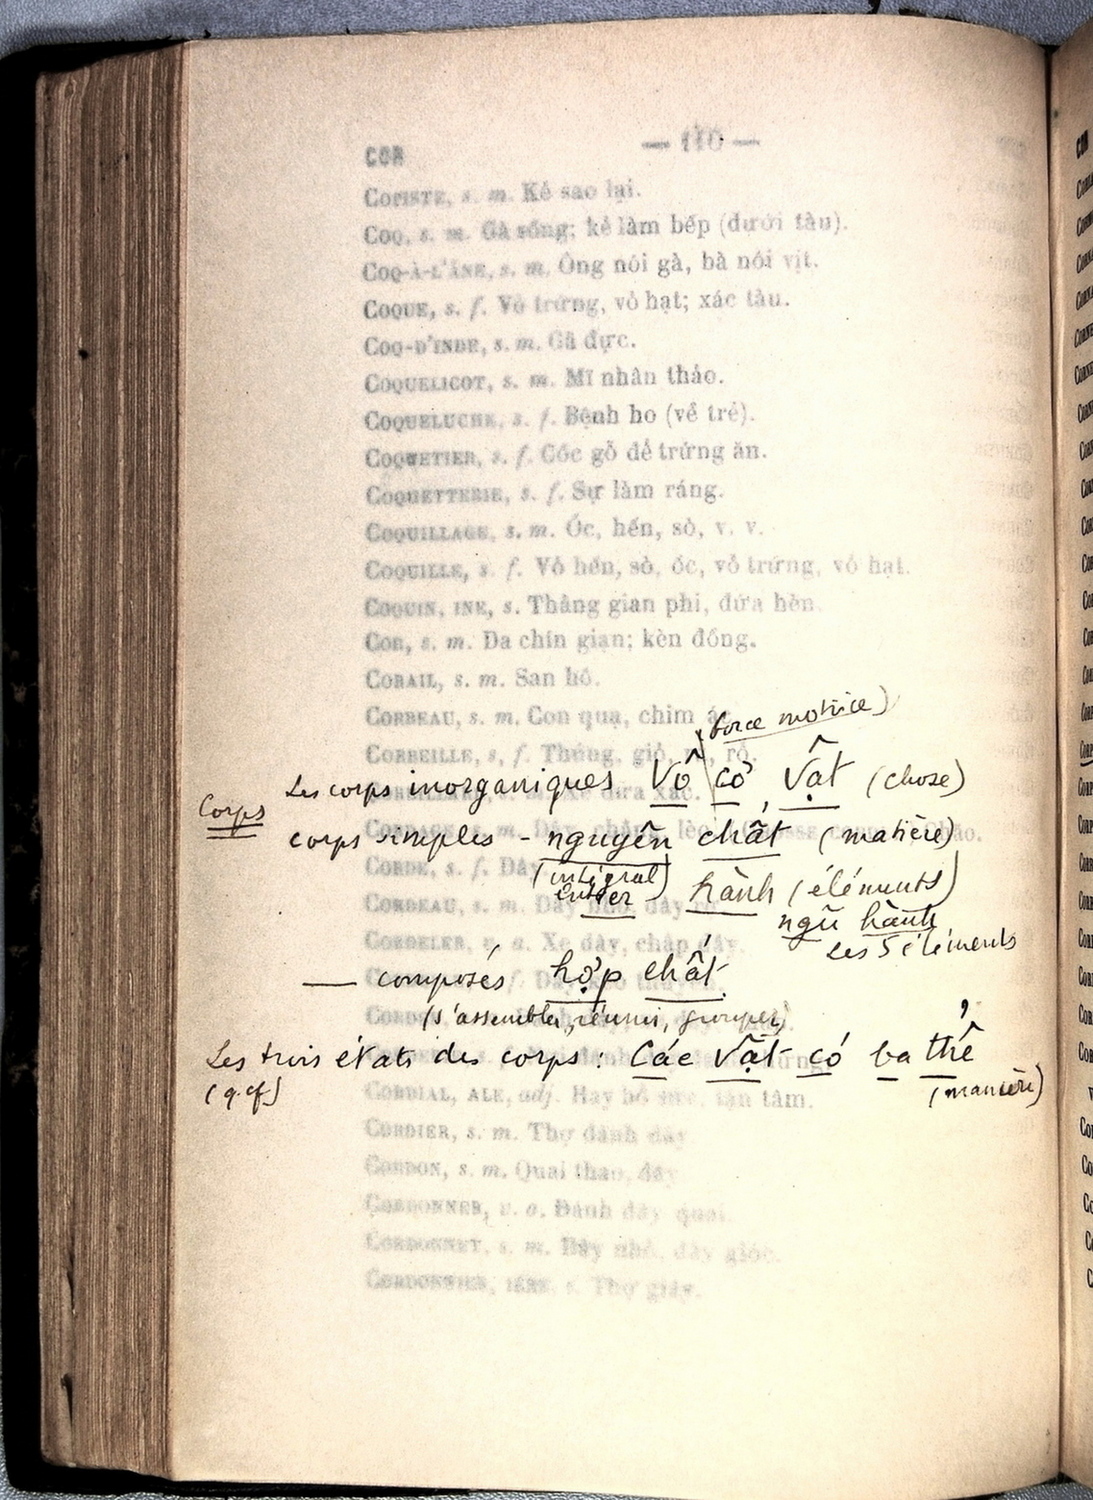 COR — 110 —
COPISTE, s. m. Kẻ sao lại.
COQ, s. m. Gà sống; kẻ làm bếp (dưới tàu).
COQ-À-L'ÂNE, s. m. Ông nói gà, bà nói vịt.
COQUE, s. f. Vỏ trứng, vỏ hạt; xác tàu.
COQ-D'INDE, s. m. Gà đực.
COQUELICOT, s. m. Mĩ nhân thảo.
COQUELUCHE, s. f. Bệnh ho (về trẻ).
COQUETIER, s. f. Cốc gỗ để trứng ăn.
COQUETTERIE, s. f. Sự làm ráng.
COQUILLAGE, s. m. Ốc, hến, sò, v. v.
COQUILLE, s. f. Vỏ hến, sò, ốc, vỏ trứng, vỏ hạt.
COQUIN, INE, s. Thằng gian phi, đứa hèn.
COR, s. m. Da chín gian; kèn đồng.
CORAIL, s. m. San hô.
CORBEAU, s. m. Con quạ, chim ác.
force motrice)
CORBEILLE, s, f. Thúng, giỏ, rổ.
Les corps inorganiques Vô cơ vật (chose)
Corps
corps simples - nguyên chất (matière)
CORDE, s. f. Dây
(intégral entier)
hành (éléments)
CORDEAU, s. m. Dây nhỏ, dây
ngũ hành
les 5 éléments
CORDELER, v. a. Xe dây, chắp dây.
— composés hợp chất
(s'assembler, réunir, grouper)
Les trois états des corps: Các vật có ba thể
(q.qf)
(manière)
CORDIAL, ALE, adj. Hay bổ sức, tận tâm.
CORDIER, s. m. Thợ đánh dây
CORDON, s. m. Quai thao, dây
CORDONNER, v. a. Đánh dây quai.
CORDONNET, s. m. Dây nhỏ, dây giốc.
CORDONNIER, IÈRE, s. Thợ giày.